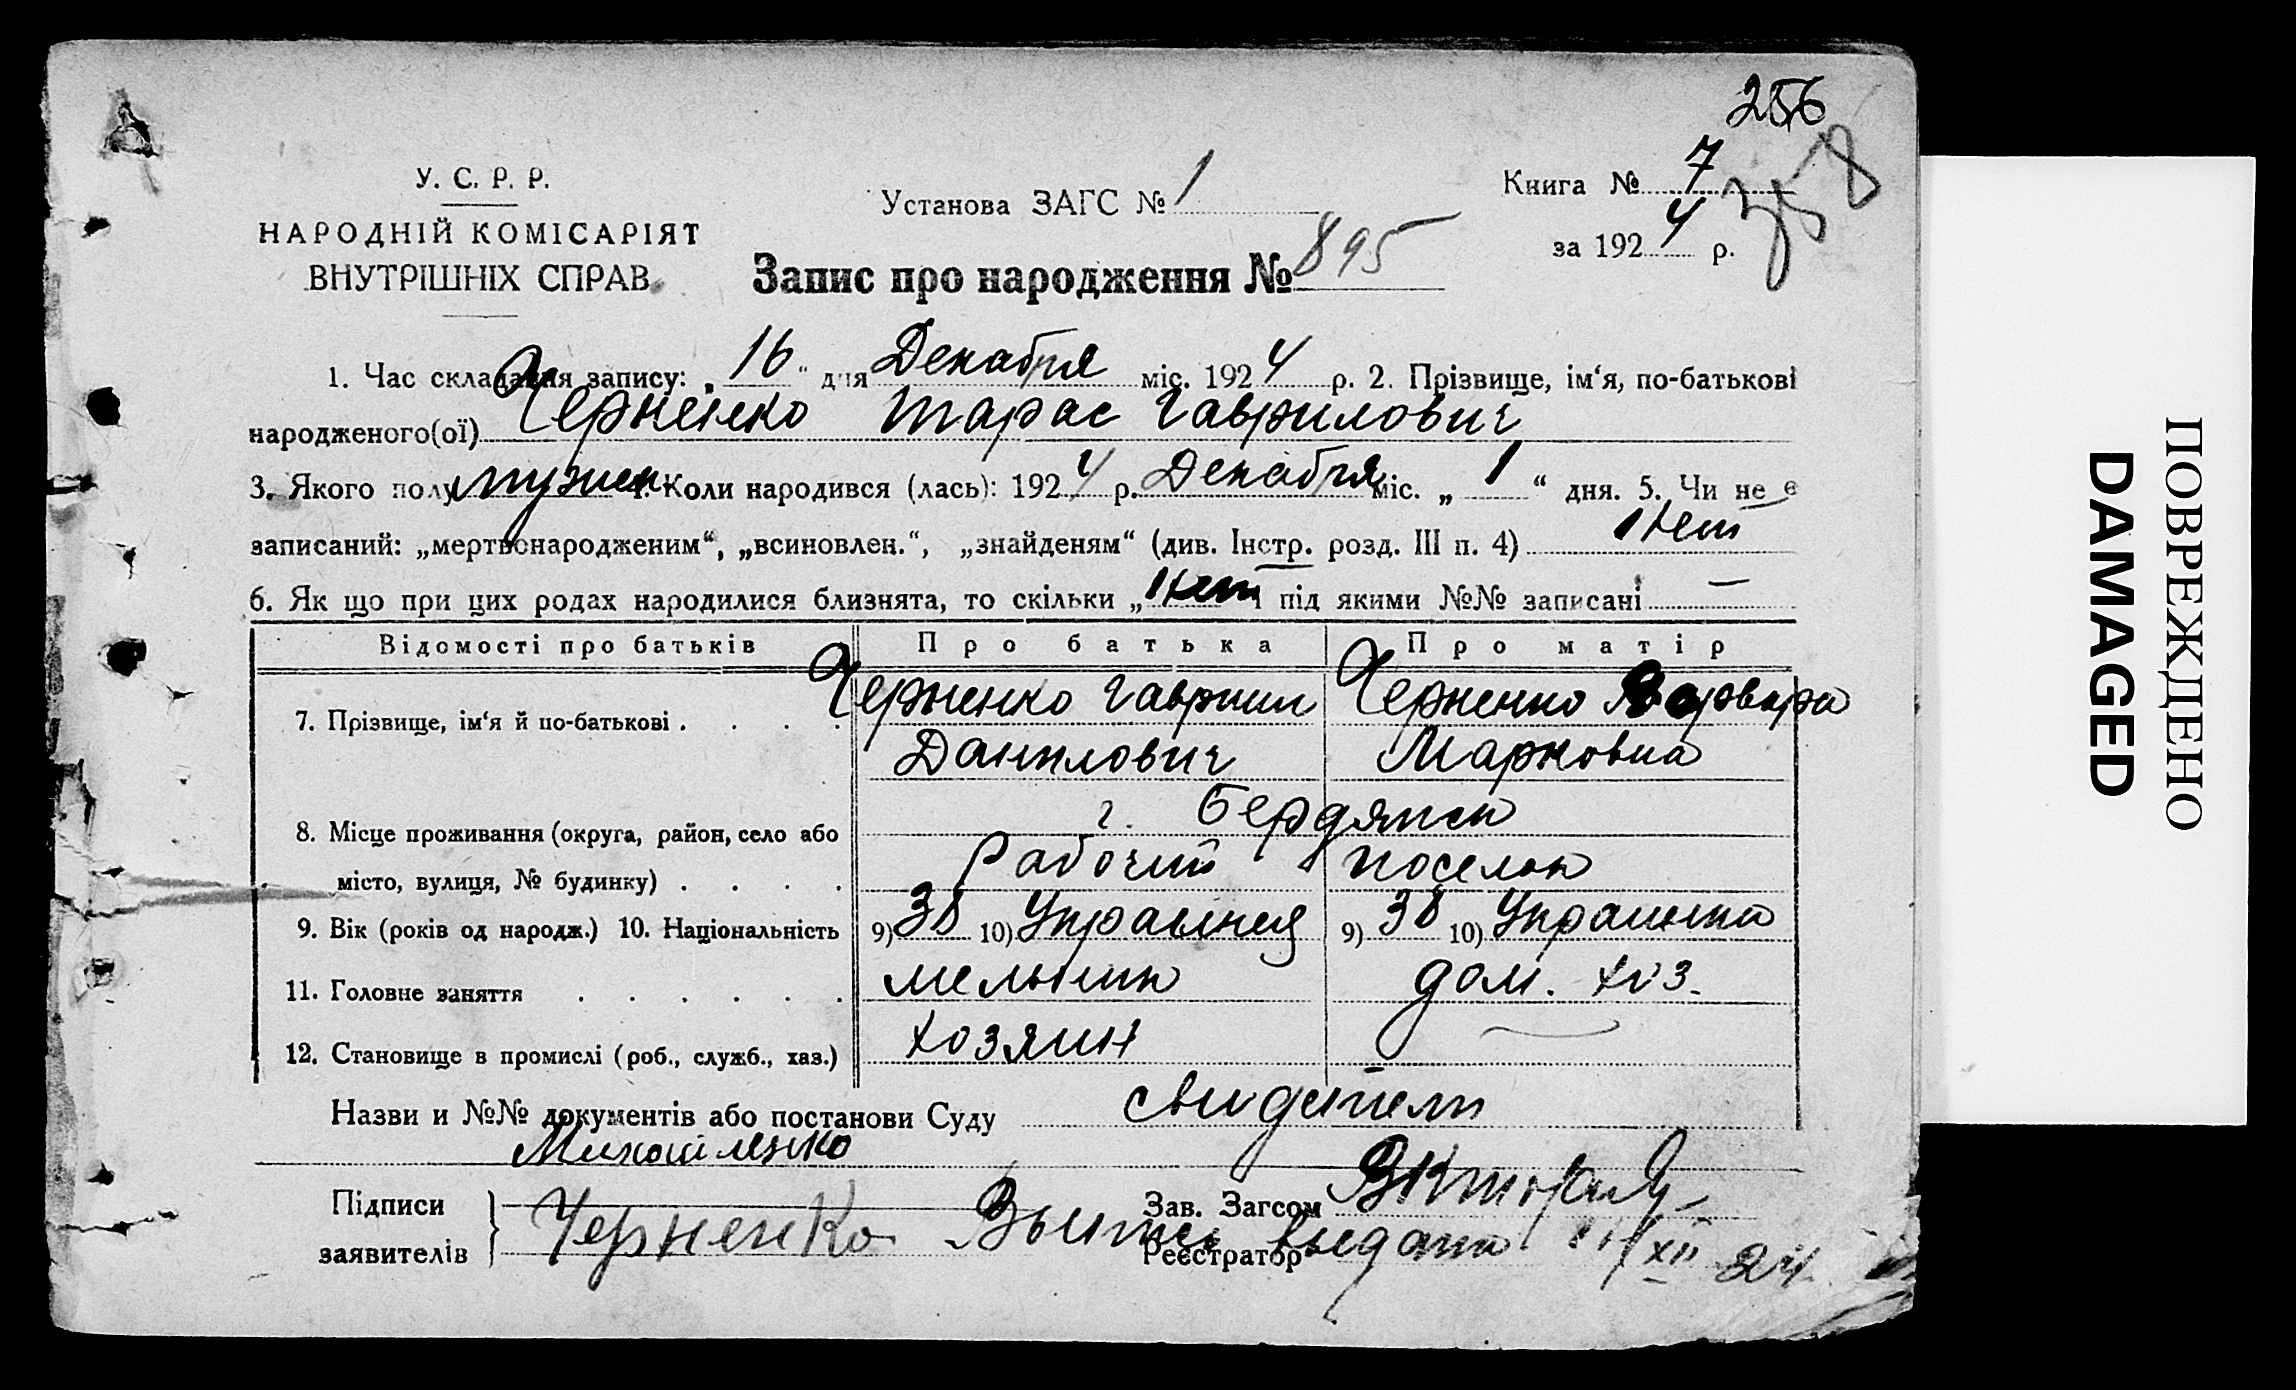 256
358
У. С. Р. Р.
НАРОДНІЙ КОМІСАРІЯТ
ВНУТРІШНІХ СПРАВ.
Установа ЗАГС № 1
Книга № 7
за 1924 р.
Запис про народження № 895
1. Час складання запису: „16“ дня Декабря міс. 1924 р. 2. Прізвище, ім‘я, по-батькові
народженого(ої) Черненко Тарас Гаврилович
3. Якого полу мужск 4. Коли народився (лась): 1924 р. Декабря міс. „1“ дня. 5. Чи не є
записаний: „мертвонародженим“, „всиновлен.“, „знайденям“ (див. Інстр. розд. III п. 4) Нет
6. Як що при цих родах народилися близнята, то скільки „Нет під якими №№ записані —
Відомості про батьків Про батька Про матір
7. Прізвище, ім‘я й по-батькові . . . . Черненко Гавриил Черненко Варвара
Данилович Марковна
8. Місце проживання (округа, район, село або г. Бердянск
місто, вулиця, № будинку) . . . . Рабочий поселок
9. Вік (років од народж.) 10. Національність 9) 38 10) Украинец 9) 38 10) Украинка
11. Головне заняття . . . . . . мельник дом. хоз.
12. Становище в промислі (роб., служб., хаз.) хозяин
Назви и №№ документів або постанови Суду свидетели
Михайленко
Підписи
заявителів
Черненко
Зав. Загсом
Реєстратор
Выпись выдана XII 24
ПОВРЕЖДЕНО
DAMAGED